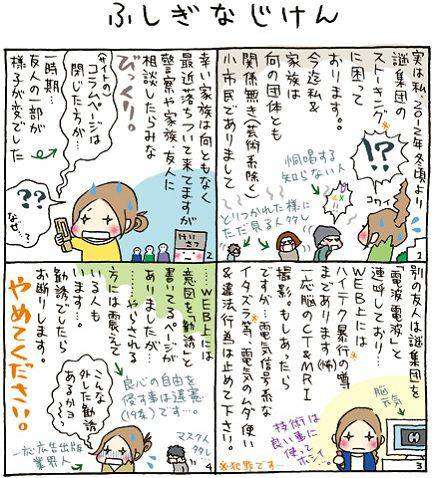 ふしぎなじけん
実は私、2012年冬頃より、
謎集団の
ストーキング※
に困って
おります。
今迄私&
家族は
何の団体とも
関係無き(芸術系除く)
小市民でありまして
!?
コワイ
恫喝する
知らない人
とりつかれた様に
ただ見る人多し
1
幸い家族は何ともなく
最近落ちついて来てますが
警察や家族、友人に
相談したらみな
びっくり。
(サイトの)
コラムページは
閉じた方が…
一時期…
友人の一部が
様子が変でした
??
なぜ…?
けいさつ
2
別の友人は謎集団を
「電波電波」と
連呼しており…
WEB上には
ハイテク暴行の噂
まであります(怖)
一応脳のCT&MRI
撮影。もしあったら
ですが、電気信号系な
イタズラ等、電気のムダ使い
&違法行為は止めて下さい。
※犯罪です…
脳
元気
技術は
良い事に
使って
ホシイ…
3
…WEB上には
意図を「勧誘」と
書いてるページが
ありましたが…
……やらされる
方には震えて
いる人も
います。
勧誘でしたら
お断りします。
やめてください。
良心の自由を
侵す事は違憲
(19条)です…。
こんな
外した勧誘
あるかヨ…
一応広告出版
業界人
マスク人
多し…
4